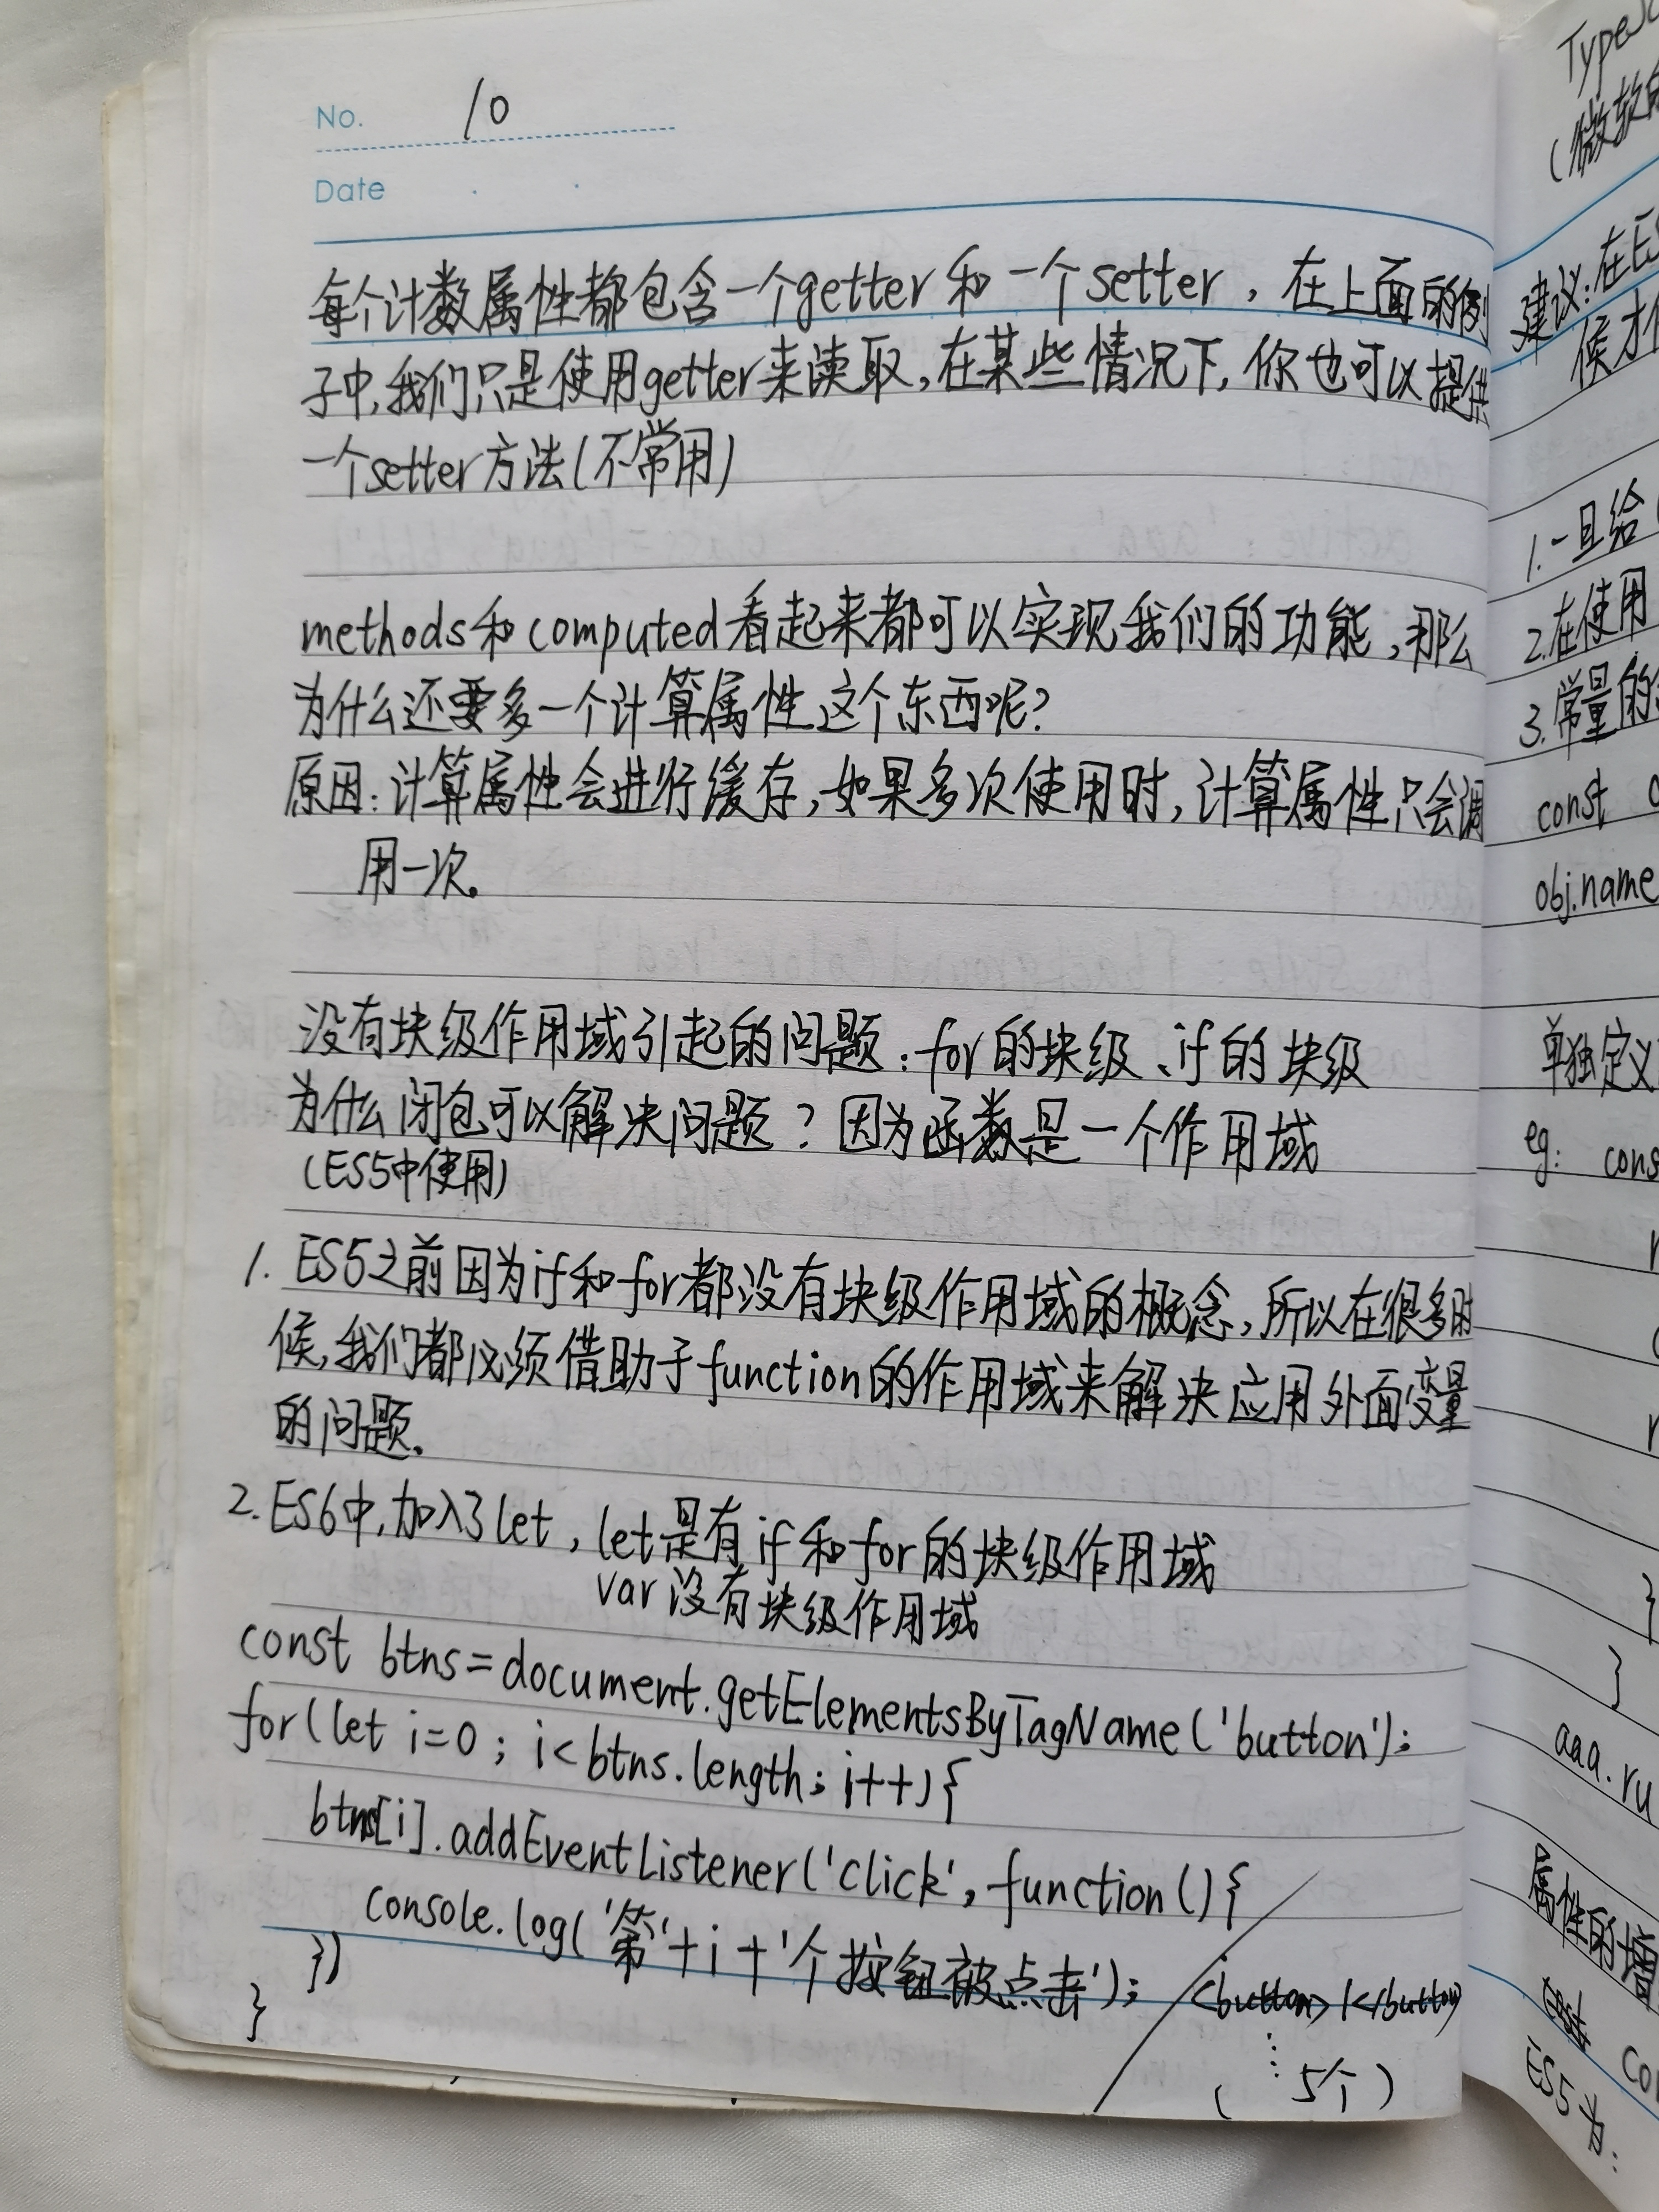 No. 10
Date
每个计数属性都包含一个getter和一个setter，在上面的例
子中，我们只是使用getter来读取，在某些情况下，你也可以提供
一个setter方法(不常用)
methods和computed看起来都可以实现我们的功能，那么
为什么还要多一个计算属性这个东西呢？
原因：计算属性会进行缓存，如果多次使用时，计算属性只会调
用一次。
没有块级作用域引起的问题：for的块级、if的块级
为什么闭包可以解决问题？因为函数是一个作用域
(ES5中使用)
1. ES5之前因为if和for都没有块级作用域的概念，所以在很多时
候，我们都必须借助于function的作用域来解决应用外面变量
的问题。
2. ES6中，加入了let，let是有if和for的块级作用域
var没有块级作用域
const btns=document.getElementsByTagName('button');
for(let i=0; i<btns.length; i++){
btns[i].addEventListener('click', function(){
console.log('第'+i+'个按钮被点击');
})
}
<button>1</button>
⋮
( 5个 )
TypeSc
(微软
建议：在ES
候才
1.一旦给
2.在使用
3.常量的
const
obj.name
单独定义
eg: cons
}
}
aaa.ru
属性的增
ES5为：